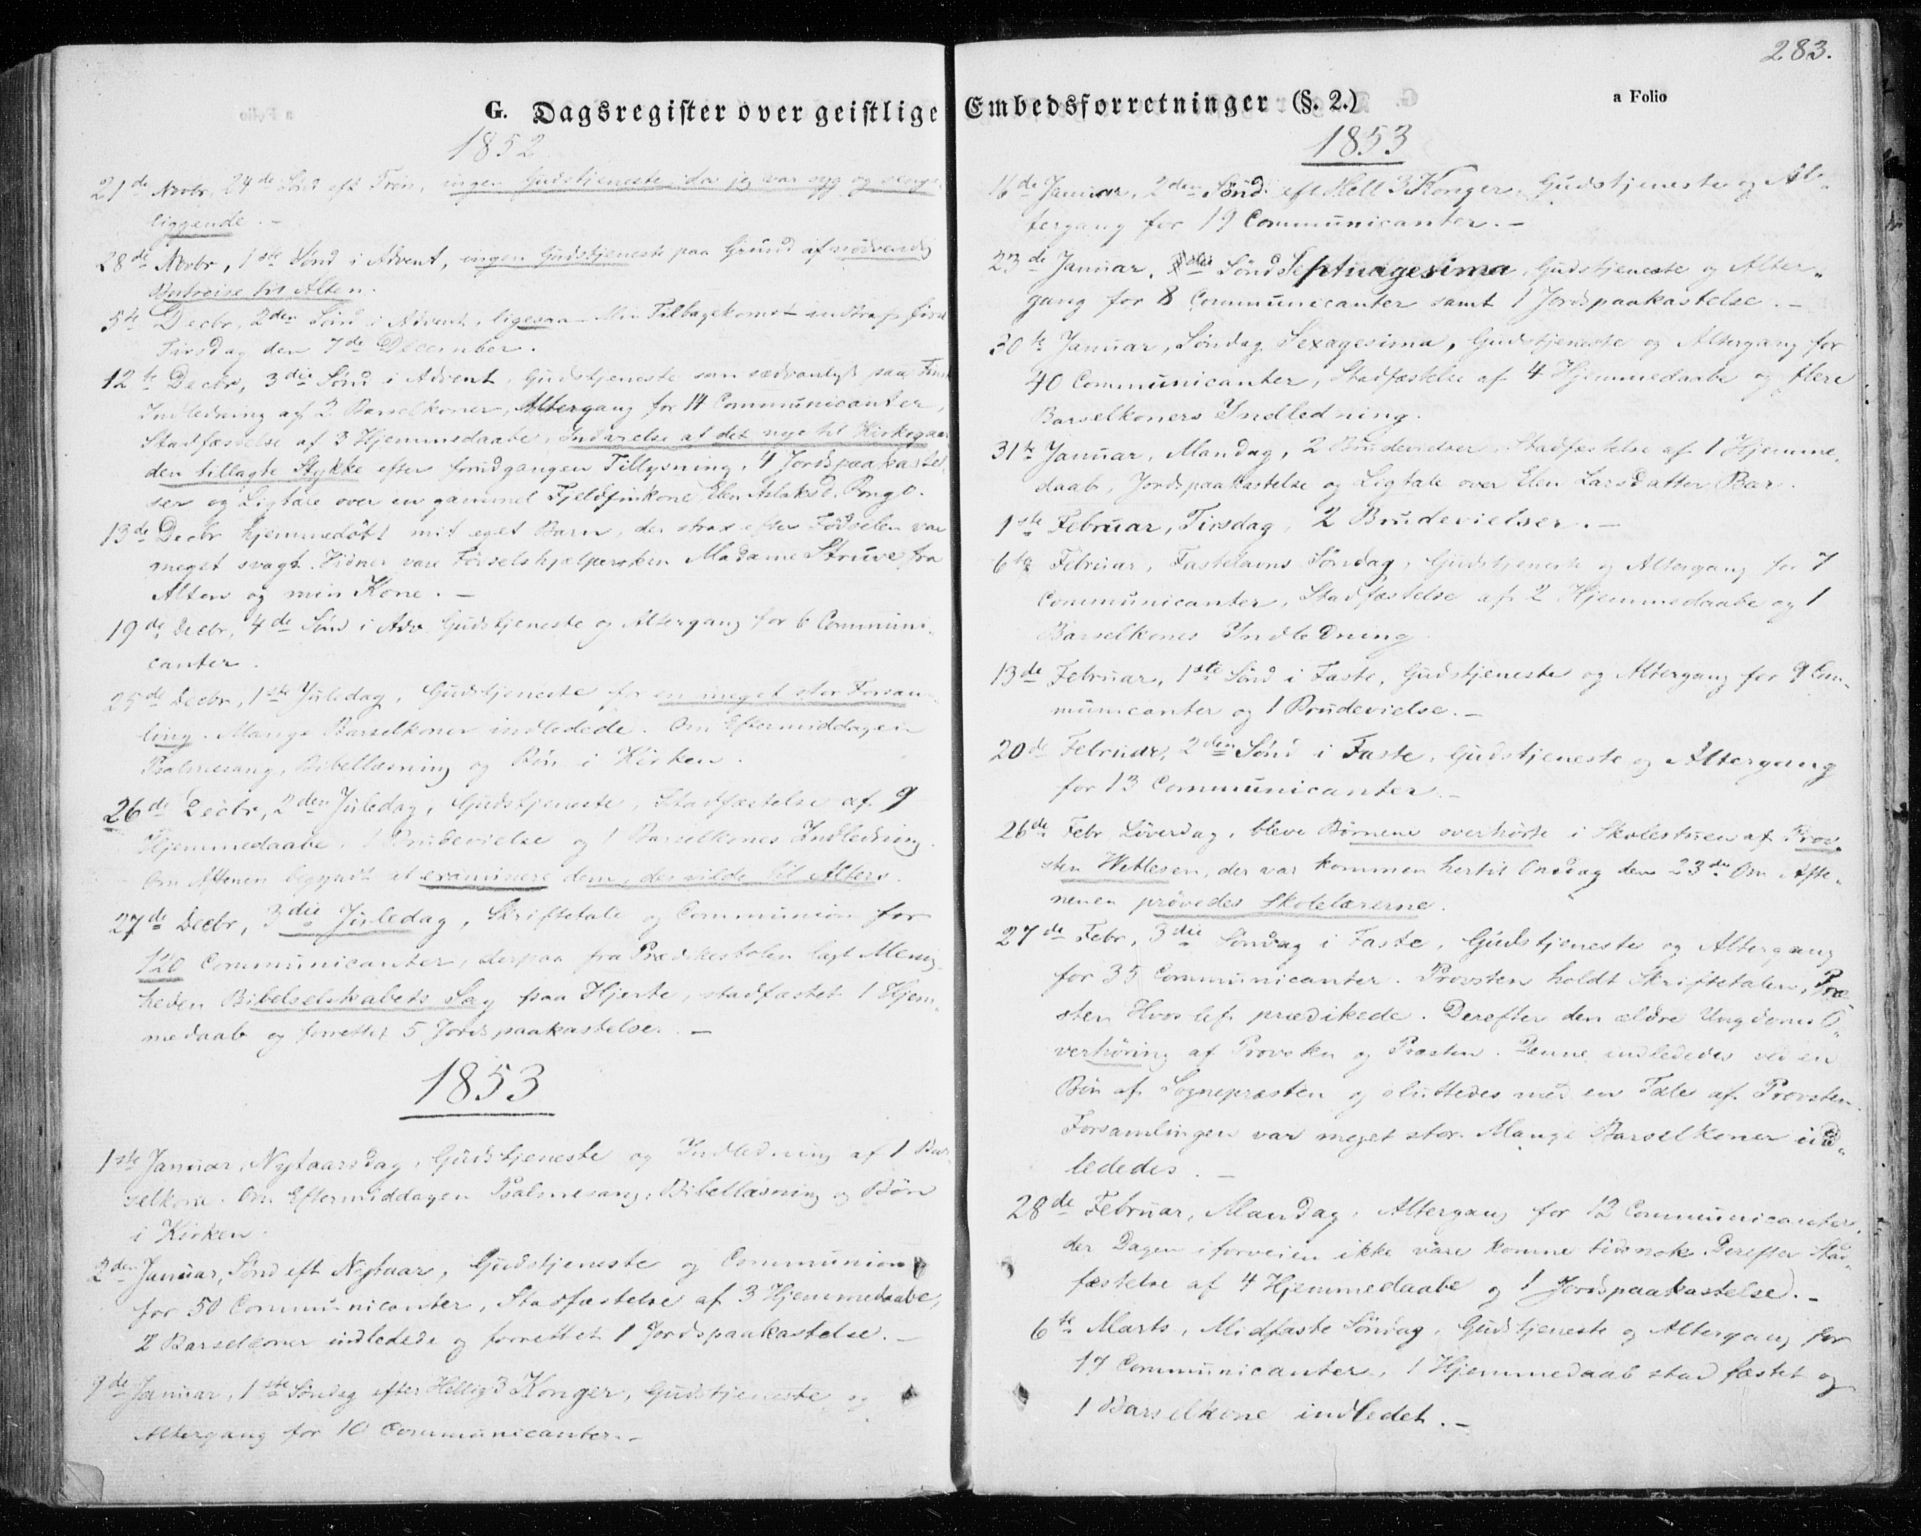 283.
G. Dagsregister over geistlige Embedsforretninger (§. 2.)
a Folio
1852
21de Novbr, 24de Sønd eft Trin, ingen Gudstjeneste, da jeg var syg og senge-
liggende. –
28de Novbr, 1ste Sønd i Advent, ingen Gudstjeneste paa Grund af nødvendig
Bortreise til Alten.
5te Decbr, 2den Sønd i Advent, ligesaa. Min Tilbagekomst indtraf først
Tirsdag den 7de December.
12te Decbr, 3die Sønd i Advent, Gudstjeneste som sædvanligt, saa
Indledning af 2 Barselkoner, Altergang for 14 Communicanter,
Stadfæstelse af 3 Hjemmedaabe, Indvielse af det nye til Kirkegaar-
den tillagte Stykke efter forudgangen Tillysning, 4 Jordspaakastel-
ser og Ligtale over en gammel Fjeldfinkone Elen Aslaksd. Pongo.
13de Decbr hjemmedøbt mit eget Barn, der strax efter Fødselen var
meget svagt. Vidner vare Fødselshjælpersken Madame Struve fra
Alten og min Kone. –
19de Decbr, 4de Sønd i Adv. Gudstjeneste og Altergang for 6 Communi-
canter.
25de Decbr, 1ste Juledag, Gudstjeneste for en meget stor Forsam-
ling. Mange Barselkoner indledede. Om Eftermiddagen
Psalmesang, Bibellæsning og Bøn i Kirken.
26de Decbr, 2den Juledag, Gudstjeneste, Stadfæstelse af 9
Hjemmedaabe, 1 Brudevielse og 1 Barselkones Indledning.
Om Aftenen begyndt at examinere dem, der vilde til Alters.
27de Decbr, 3die Juledag, Skriftetale og Communion for
120 Communicanter, derpaa fra Prædikestolen lagt Menig-
heden Bibelselskabets Sag paa Hjerte, stadfæstet 1 Hjem-
medaab og forrettet 5 Jordspaakastelser. –
1853
1ste Januar, Nytaarsdag, Gudstjeneste og Indledning af 1 Bar-
selkone. Om Eftermiddagen Psalmesang, Bibellæsning og Bøn
i Kirken.
2den Januar, Sønd eft Nytaar, Gudstjeneste og Communion
for 50 Communicanter, Stadfæstelse af 3 Hjemmedaabe,
2 Barselkoner indledede og forrettet 1 Jordspaakastelse. –
9de Januar, 1ste Søndag efter Hellig 3 Konger, Gudstjeneste og
Altergang for 10 Communicanter. –
1853
16de Januar, 2den Sønd eft Hell 3 Konger, Gudstjeneste og Al-
tergang for 19 Communicanter. –
23de Januar, Sønd Septuagesima, Gudstjeneste og Alter-
gang for 8 Communicanter samt 1 Jordspaakastelse. –
30te Januar, Søndag Sexagesima, Gudstjeneste og Altergang for
40 Communicanter, Stadfæstelse af 4 Hjemmedaabe og flere
Barselkoners Indledning.
31te Januar, Mandag, 2 Brudevielser, Stadfæstelse af 1 Hjemme-
daab, Jordspaakastelse og Ligtale over Elen Larsdatter Bær.
1ste Februar, Tirsdag, 2 Brudevielser. –
6te Februar, Fastelavns Søndag, Gudstjeneste og Altergang for 7
Communicanter, Stadfæstelse af 2 Hjemmedaabe og 1
Barselkones Indledning.
13de Februar, 1ste Sønd i Faste, Gudstjeneste og Altergang for 9 Com-
municanter og 1 Brudevielse. –
20de Februar, 2den Sønd i Faste, Gudstjeneste og Altergang
for 13 Communicanter. –
26de Febr Løverdag, bleve Børnene overhørte i Skolestuen af Prov-
sten Wetlesen, der var kommen hertil Onsdag den 23de Om Afte-
nenen prøvedes Skolelærerne.
27de Febr, 3die Søndag i Faste, Gudstjeneste og Altergang
for 35 Communicanter. Provsten holdt Skriftetalen, Præ-
sten Hvoslef prædikede. Derefter den ældre Ungdoms O-
verhøring af Provsten og Præsten. Denne indlededes ved en
Bøn af Sognepræsten og sluttedes med en Tale af Provsten.
Forsamlingen var meget stor. Mange Barselkoner ind-
lededes. –
28de Februar, Mandag, Altergang for 12 Communicanter,
der Dagen iforveien ikke vare komne tidsnok. Derefter Stad-
fæstelse af 4 Hjemmedaabe og 1 Jordspaakastelse. –
6te Marts, Midfaste Søndag, Gudstjeneste og Altergang for
17 Communicanter, 1 Hjemmedaab stadfæstet og
1 Barselkone indledet. –